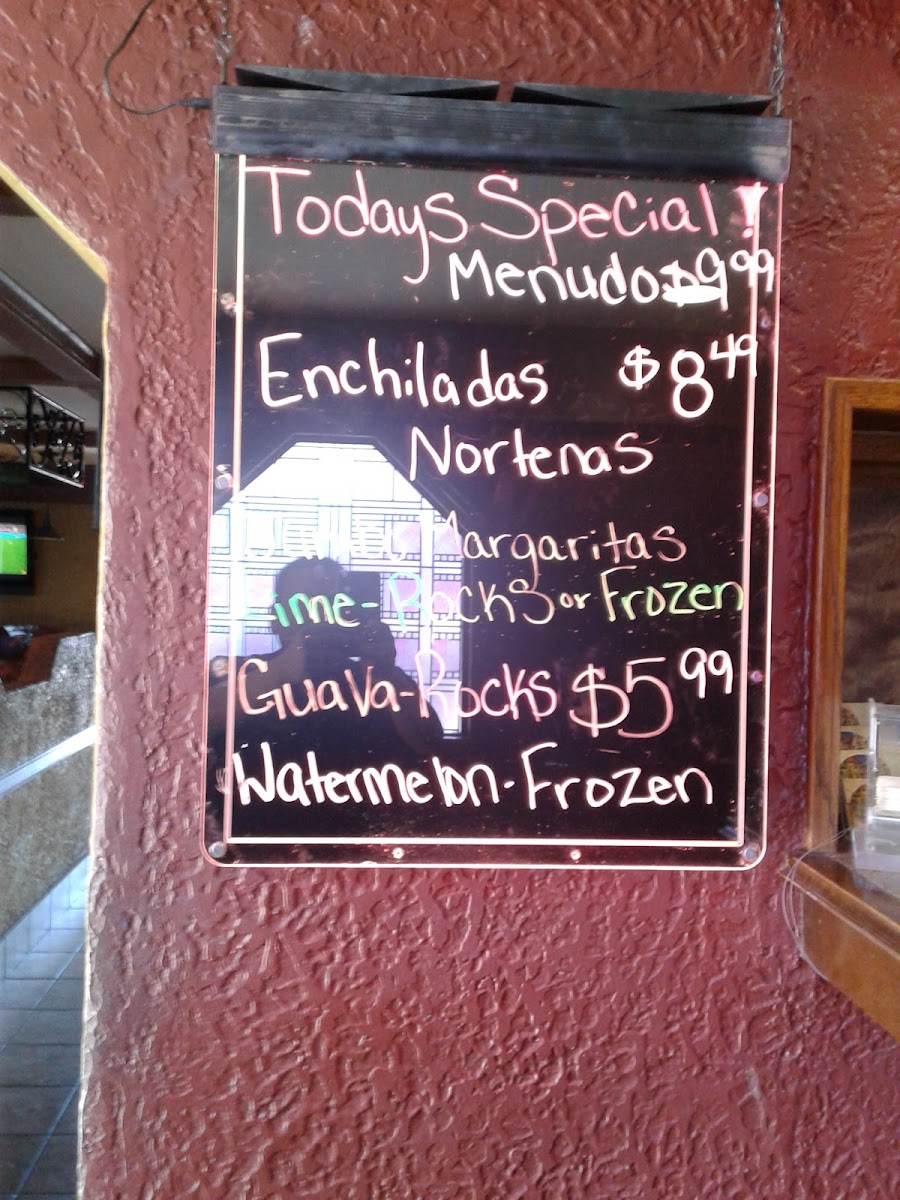 Todays Special!
Menudo $9.99
Enchiladas $8.49
Nortenas
Margaritas
Lime-Rocks or Frozen
Guava-Rocks $5.99
Watermelon-Frozen